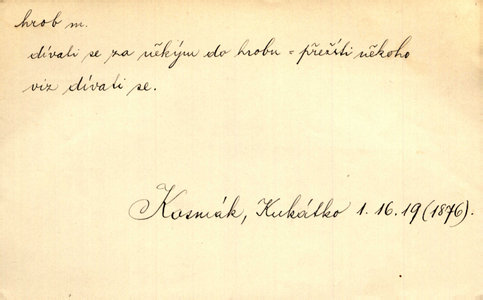 hrob m.
dívati se za někým do hrobu = přežíti někoho
viz dívati se.
Kosmák, Kukátko 1. 16. 19 (1876).